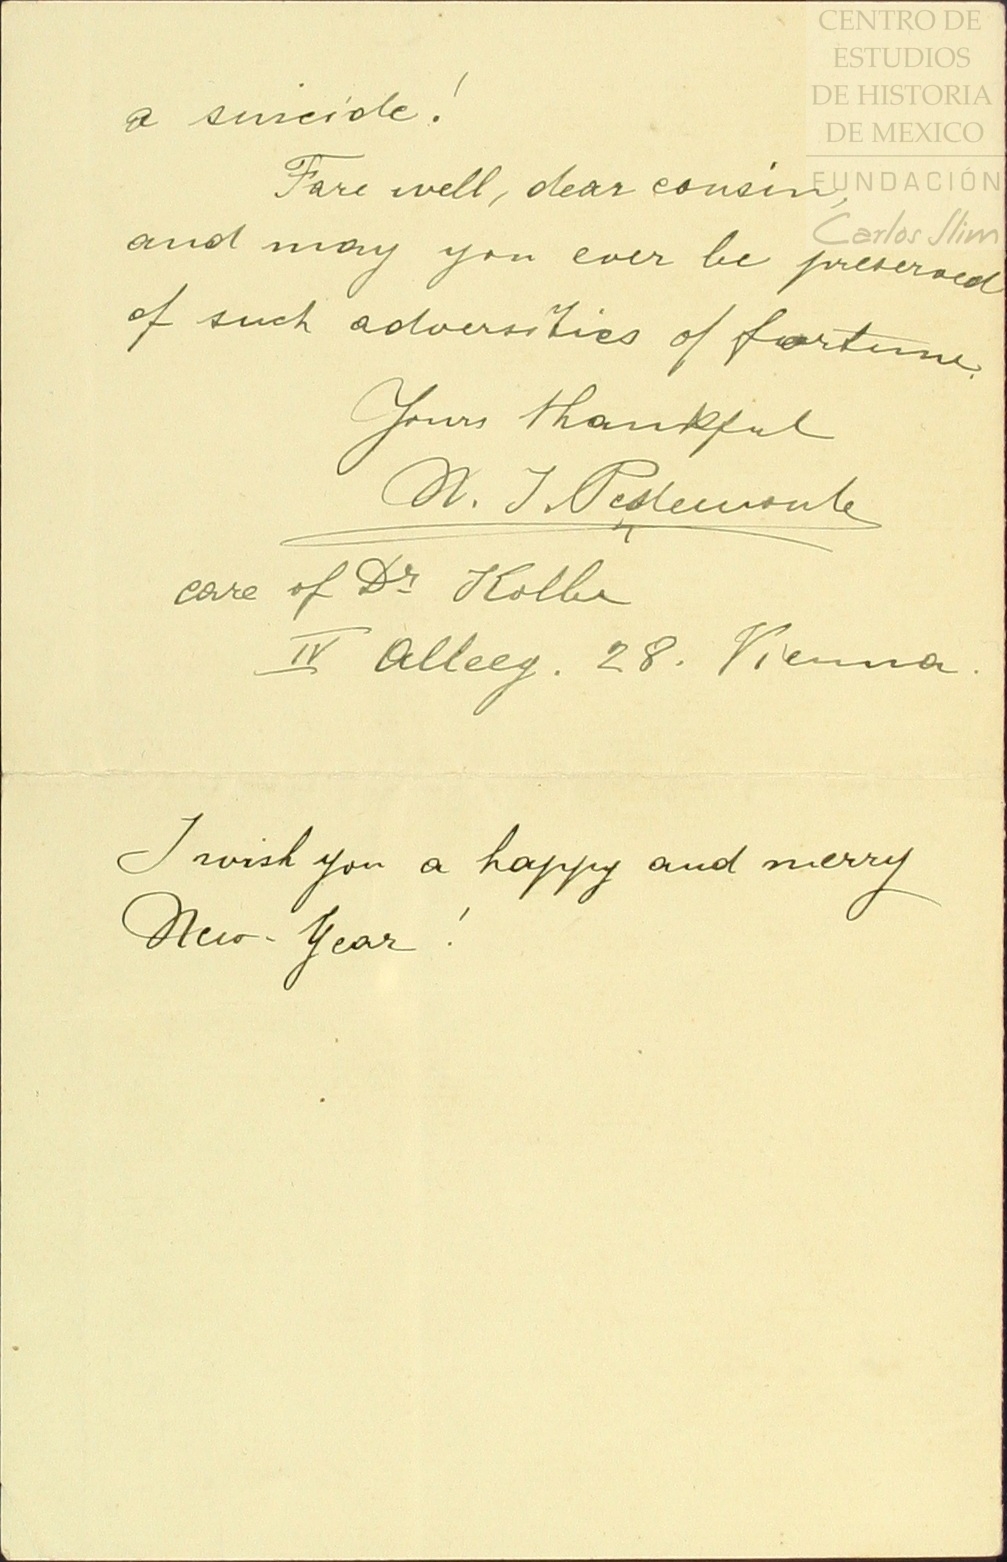 CENTRO DE
ESTUDIOS
DE HISTORIA
DE MEXICO
FUNDACIÓN
Carlos Slim
a suicide!
Fare well, dear cousin,
and may you ever be preserved
of such adversities of fortune.
Yours thankful
N. J. Pestemonte
care of Dr Kolbe
IV Alleeg. 28. Vienna.
I wish you a happy and merry
New-Year!